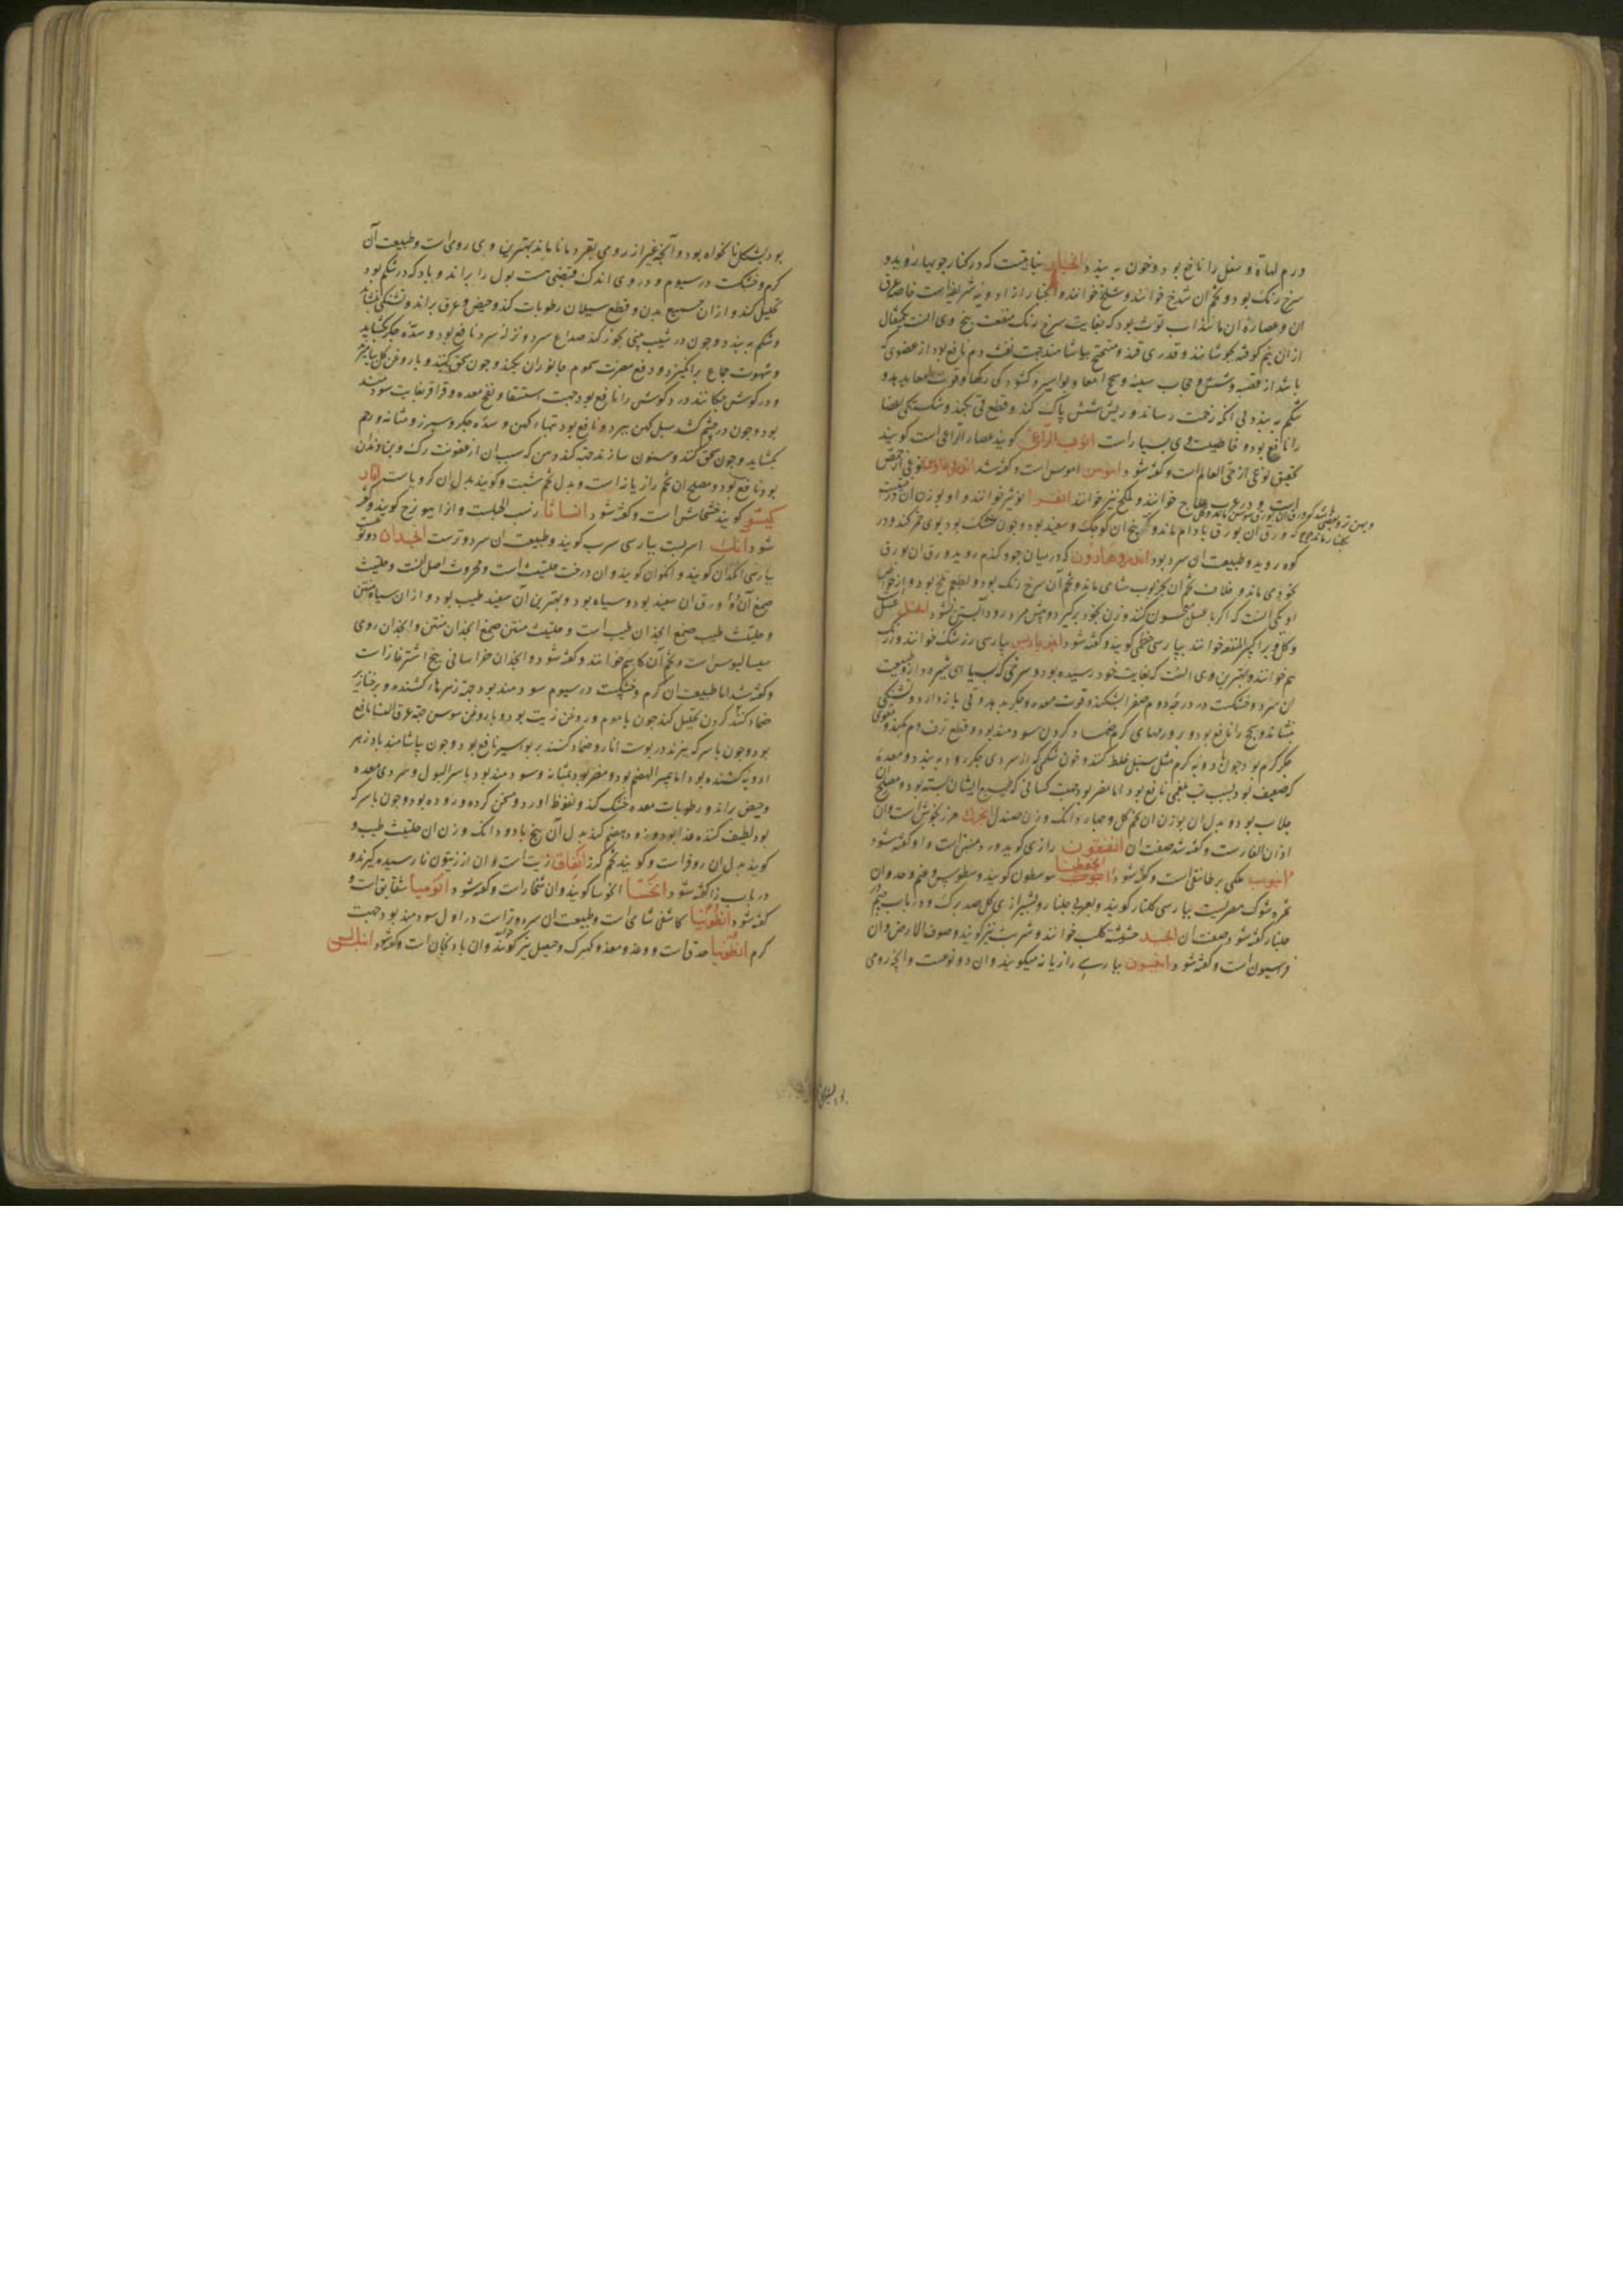 ورم لهاة و سفل را نافع بود و خون به بندد انجبار بنا بیست که در کنار جویها روید و
سرخ رنک بود و تخم آن شدخ خوانند و شلخ خوانند و انجبار از ادویه شریفه است خاصه عرق
ان و عصاره ان مانند اب توث بود که بغایت سرخ رنک منفعت بیخ وی انست یکمثقال
از ان بیخ کوفته بجوشانند و قدری قند ممتزج بیاشامند جهت نفث دم نافع بود از عضوی که
باشد از قصبه و شش و حجاب سینه و سحج امعا و بواسیر و کشودکی رکها و قوت معا بدهد و
شکم به بندد بی انکه زحمت رساند و ریش شش پاک کند و قطع قی بکند و شکستکی اعضا
را نافع بود و خاصیت وی بسیار است انوف الراعی کویند عصار الراعی است کویند
بتحقیق نوعی از حی العالم است و کفته شود انوسن اموسن است و کفته شد
خوانند و ملخ نیز خوانند انفرا انویثر خوانند و او بوزن ان درخت
که ورق آن بورق بادام ماند و بیخ ان کوچک و سفید بود و چون خشک بود بوی خمر کند و در
کوه روید و طبیعت ان سرد بود اندروصارون که در میان جو و کندم روید ورق ان بورق
نخود می ماند و غلاف تخم ان بخرنوب شامی ماند و تخم آن سرخ رنک بود و بطعم تلخ بود و از خواص
او یکی انست که اکر با عسل معجون کنند و زن بخود برکیرد و پیش مرد رود آبستن نشود
خوانند بپارسی خطمی کویند و کفته شود انبرباریس بپارسی زرشک خوانند و زرک
هم خوانند و بهترین وی انست که بغایت خود رسیده بود و سرخی که بسیاهی تیره دارد طبیعت
ان سرد و خشکست در درجه دوم صفرا بشکند و قوت معده و جکر بدهد و قی باز دارد و تشنکی
بنشاند و سحج را نافع بود و بر ورمهای کرم ضماد کردن سودمند بود و قطع نزف دم بکند و مقوی
جکر کرم بود چون با ادویه کرم مثل سنبل خلط کنند و خون شکمی که از سردی جکر رود به بندد و معده
که ضعیف بود بسبب تب بلغمی نافع بود اما مضر بود جهت کسانی که طبیع ایشان بسته بود و مصلح
جلاب بود و بدل ان بوزن ان تخم کل و چهار دانک وزن صندل انجرک مرزنجوش است وان
اذان الفار ست و کفته شد صفت ان انفقون رازی کوید ورد منتن است و او کفته شود
انبوب علکی برطانیقی است و کفته شود انجوفطینا سوسطون کویند و سطوبیس
ثمره شوک مصریست بپارسی کلنار کویند و بعربی جلنار و بشیرازی کل صد برک و در باب جیم در
جلنار کفته شود صفت ان انجید حشیشة کلب خوانند و شربث نیز کویند و صوف الارض وان
فراسیون است و کفته شود انیسون بپارسی رازیانه میکویند وان دو نوعست و انچه رومی
بود بشکل نانخواه بود و آنچه غیر از رومی بقردمانا ماند بهترین وی رومی است و طبیعت آن
کرم و خشکست در سیوم و در وی اندک قبضی هست بول را براند و باد که در شکم بود
تحلیل کند و از ان جمیع بدن و قطع سیلان رطوبات کند و حیض و عرق براند و تشنکی بنشاند
و شکم به بندد و چون در شیب بینی بخور کنند صداع سرد و نزله سرد نافع بود و سده جکر بکشاید
و شهوت جماع برانکیزد و دفع مضرت سموم جانوران بکند و چون سحق کنند و با روغن کل بیامیزند
و در کوش چکانند درد کوش را نافع بود جهت استسقا و نفخ معده و قراقر بغایت سودمند
بود و چون در چشم کشند سبل کهن ببرد و نافع بود تبهاء کهن و سده جکر و سپرز و مثانه و رحم
بکشاید و چون سحق کنند و سنون سازند جهت کند دهن که سبب ان از عفونت رک و بن دندان
بود نافع بود و مصلح ان تخم رازیانه است و بدل تخم شبت و کویند بدل ان کرویا ست انار
کیشو کویند خشخاش است و کفته شود انساثا زنب الجلست و از ایبونج کویند و کفته
شود انک اسربست بپارسی سرب کویند و طبیعت ان سرد و ترست انجدان دو نوعست
بپارسی انکدان کویند و انکوان کویند وان درخت حلتیث است و محروث اصل انست و حلتیث
صمغ آن و ورق ان سفید بود و سیاه بود و بهترین آن سفید طیب بود و از ان سیاه منتن
و حلتیث طیب صمغ انجدان طیب است و حلتیث منتن صمغ انجدان منتن و انجدان رومی
سیسالیوس است و تخم آن کاشم خوانند و کفته شود و انجدان خراسانی بیخ اشترغاز است
و کفته شد اما طبیعت ان کرم و خشکست در سیوم سودمند بود جهت زهرهاء کشنده و بر خنازیر
ضماد کنند کردن تحلیل کند چون با موم و روغن زیت بود و با روغن سوسن جهت عرق النسا نافع
بود و چون با سرکه بپزند در پوست انار و ضماد کنند بر بواسیر نافع بود و چون بیاشامند بادزهر
ادویه کشنده بود اما عسر الهضم بود و مضر بود بمثانه و سودمند بود با سر البول و سردی معده
و حیض براند و رطوبات معده خشک کند و نفوظ اورد و سخن کرده و روده بود و چون با سرکه
بود لطیف کننده غذا بود و زود هضم کند بدل آن بیخ با دو دانک وزن ان حلتیث طیب و
کویند بدل ان زوفرا ست و کویند تخم کزر انفاق زیت است وان از زیتون نارسیده کیرند و
در باب زا کفته شود انخسا انخوسا کویند وان شنجار است و کفته شود انومیا شقایق است و
کفته شود انطونیا کاشنی شامی است و طبیعت ان سرد و تر است در اول سودمند بود جهت
کرم انطونیا حدق است و وغد و معد و کهبرک و حیصل نیز کویند وان بادنجان است و کفته شود انبالسی